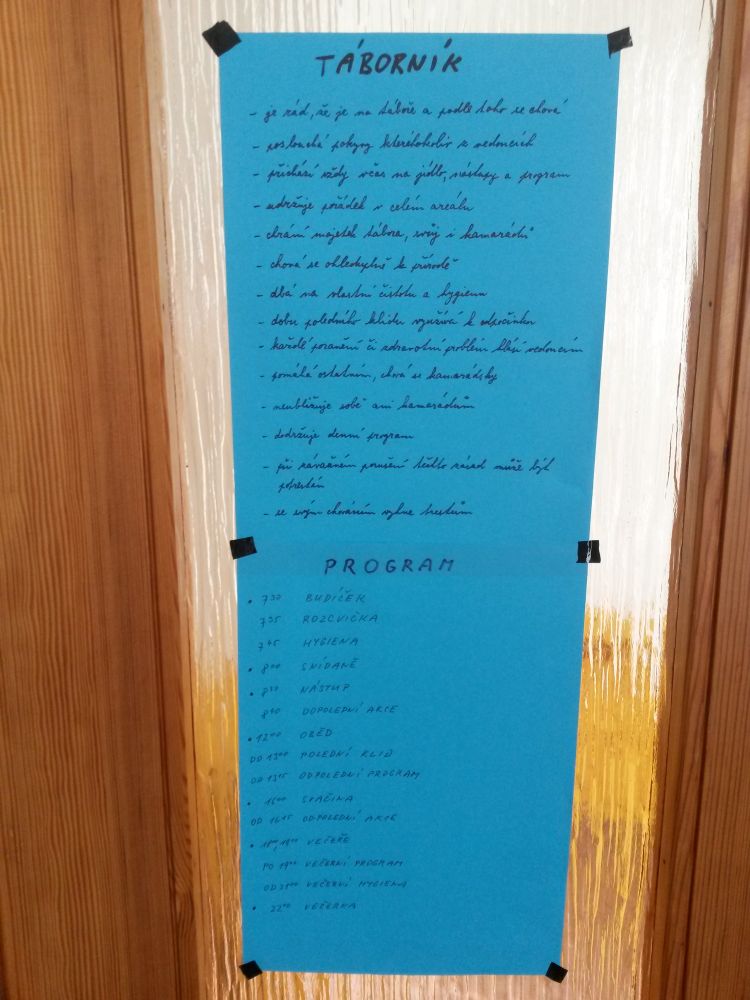 TÁBORNÍK
- je rád, že je na táboře a podle toho se chová
- poslouchá pokyny kteréhokoliv z vedoucích
- přichází vždy včas na jídlo, nástupy a program
- udržuje pořádek v celém areálu
- chrání majetek tábora, svůj i kamarádů
- chová se ohleduplně k přírodě
- dbá na vlastní čistotu a hygienu
- dobu poledního klidu využívá k odpočinku
- každé poranění či zdravotní problém hlásí vedoucím
- pomáhá ostatním, chová se kamarádsky
- neubližuje sobě ani kamarádům
- dodržuje denní program
- při závažném porušení těchto zásad může být
potrestán
- se svým chováním vyhne trestům
PROGRAM
• 7 30 BUDÍČEK
7 35 ROZCVIČKA
7 45 HYGIENA
• 8 00 SNÍDANĚ
• 8 30 NÁSTUP
8 40 DOPOLEDNÍ AKCE
• 12 00 OBĚD
DO 13 00 POLEDNÍ KLID
OD 13 15 ODPOLEDNÍ PROGRAM
• 16 00 SVAČINA
OD 16 15 ODPOLEDNÍ AKCE
• VEČEŘE
PO 19 00 VEČERNÍ PROGRAM
OD 21 00 VEČERNÍ HYGIENA
• 22 00 VEČERKA